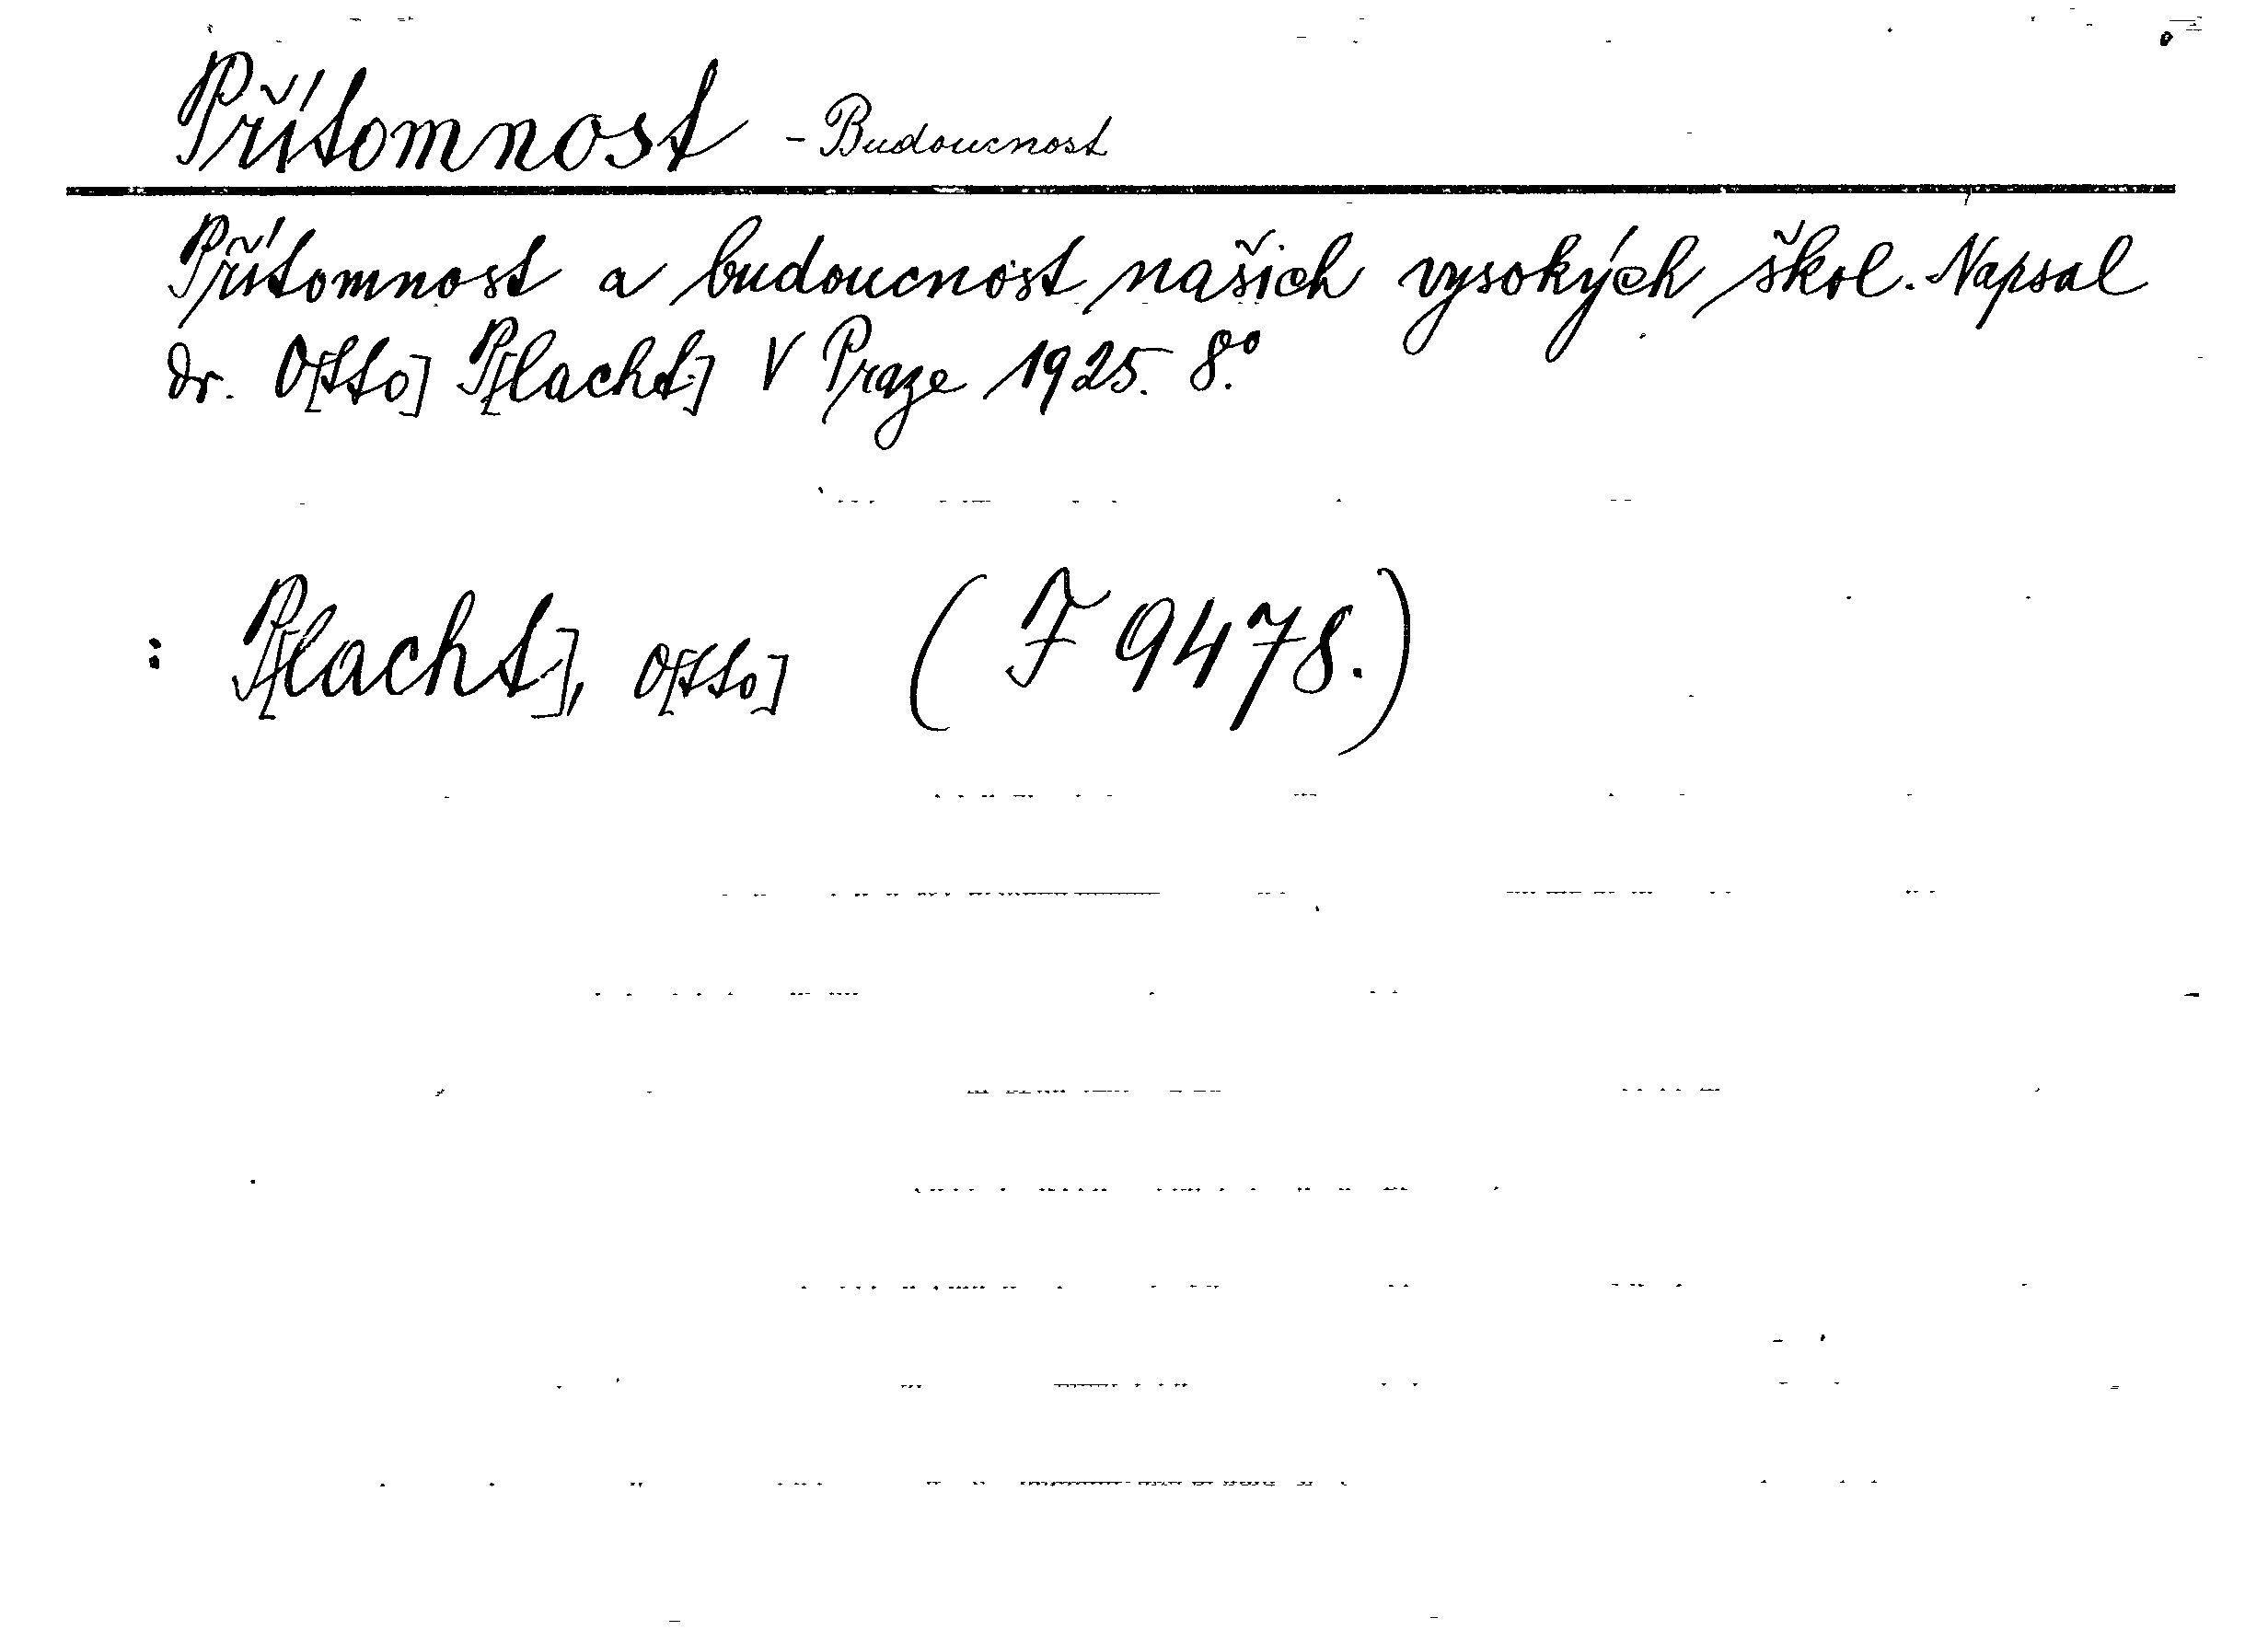 Přítomnost - Budoucnost
Přítomnost a budoucnost našich vysokých škol. Napsal
dr. O[tto] P[lacht] V Praze 1925. 8.º
: P[lacht], O[tto] (F 9478.)